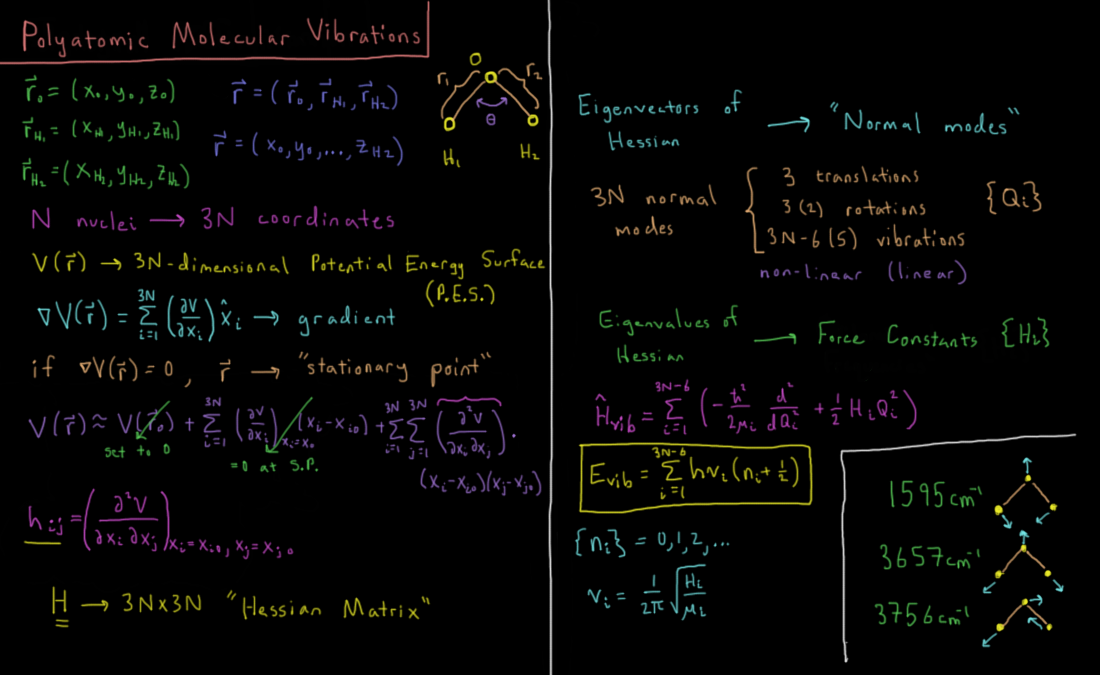 Polyatomic Molecular Vibrations
r⃗₀ = (x₀, y₀, z₀)
r⃗_H₁ = (x_H₁, y_H₁, z_H₁)
r⃗_H₂ = (x_H₂, y_H₂, z_H₂)
r⃗ = (r⃗₀, r⃗_H₁, r⃗_H₂)
r⃗ = (x₀, y₀, ..., z_H₂)
O
r₁ r₂
θ
H₁ H₂
N nuclei → 3N coordinates
V(r⃗) → 3N-dimensional Potential Energy Surface
(P.E.S.)
∇V(r⃗) = Σ_{i=1}^{3N} (∂V/∂x_i) x̂_i → gradient
if ∇V(r⃗) = 0, r⃗ → "stationary point"
V(r⃗) ≈ V(r⃗₀) + Σ_{i=1}^{3N} (∂V/∂x_i)_{x_i=x_0} (x_i - x_{i0}) + Σ_{i=1}^{3N} Σ_{j=1}^{3N} (∂²V/∂x_i ∂x_j) ·
set to 0
=0 at S.P.
(x_i - x_{i0})(x_j - x_{j0})
h_{ij} = (∂²V/∂x_i ∂x_j)_{x_i = x_{i0}, x_j = x_{j0}}
H → 3N×3N "Hessian Matrix"
Eigenvectors of
Hessian → "Normal modes"
3N normal
modes
3 translations
3 (2) rotations
3N-6 (5) vibrations
{Q_i}
non-linear (linear)
Eigenvalues of
Hessian → Force Constants {H_i}
Ĥ_vib = Σ_{i=1}^{3N-6} (-ħ²/2μ_i d²/dQ_i² + ½ H_i Q_i²)
E_vib = Σ_{i=1}^{3N-6} hν_i (n_i + ½)
{n_i} = 0, 1, 2, ...
ν_i = 1/2π √(H_i/μ_i)
1595 cm⁻¹
3657 cm⁻¹
3756 cm⁻¹